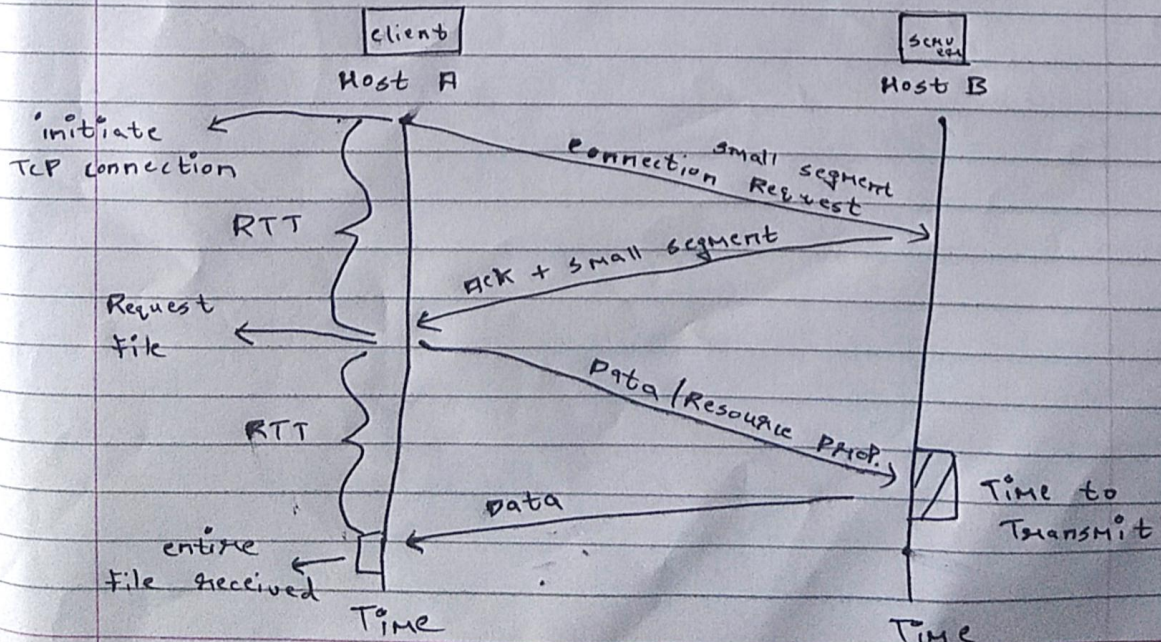 Client
Server
Host A
Host B
initiate
TCP connection
small segment
connection Request
RTT
Ack + small segment
Request
file
Data/Resource prop.
RTT
Data
Time to
Transmit
entire
file received
Time
Time